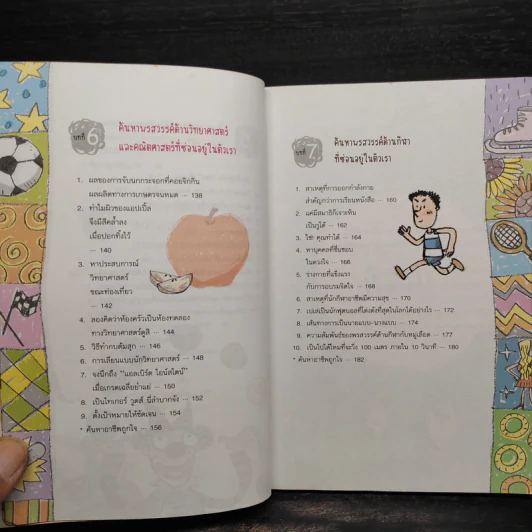 บทที่ 6
ค้นหาพรสวรรค์ด้านวิทยาศาสตร์
และคณิตศาสตร์ที่ซ่อนอยู่ในตัวเรา
1. ผลของการจับนกกระจอกที่คอยจิกกิน
ผลผลิตทางการเกษตรจนหมด — 138
2. ทำไมผิวของแอปเปิ้ล
จึงมีสีคล้ำลง
เมื่อปอกทิ้งไว้
— 140
3. หาประสบการณ์
วิทยาศาสตร์
ขณะท่องเที่ยว
— 142
4. ลองคิดว่าห้องครัวเป็นห้องทดลอง
ทางวิทยาศาสตร์ดูสิ — 144
5. วิธีทำกบต้มสุก — 146
6. การเลียนแบบนักวิทยาศาสตร์ — 148
7. จงนึกถึง "แอลเบิร์ต ไอน์สไตน์"
เมื่อเกรดเฉลี่ยย่ำแย่ — 150
8. เป็นไทเกอร์ วูดส์ นี่ลำบากจัง — 152
9. ตั้งเป้าหมายให้ชัดเจน — 154
* ค้นหาอาชีพถูกใจ — 156
บทที่ 7
ค้นหาพรสวรรค์ด้านกีฬา
ที่ซ่อนอยู่ในตัวเรา
1. สาเหตุที่การออกกำลังกาย
สำคัญกว่าการเรียนหนังสือ — 160
2. แค่มีสมาธิก็เจาะหิน
เป็นรูได้ — 162
3. ใช่! คุณทำได้ — 164
4. หาบุคคลที่ชื่นชอบ
ในดวงใจ — 166
5. ร่างกายที่แข็งแรง
กับการอบรมจิตใจ — 168
6. สาเหตุที่นักกีฬาอาชีพมีความสุข — 170
7. เปเล่เป็นนักฟุตบอลที่โด่งดังที่สุดในโลกได้อย่างไร — 172
8. เส้นทางการเป็นนายแบบ-นางแบบ — 174
9. ความสัมพันธ์ของพรสวรรค์ด้านกีฬากับหมู่เลือด — 177
10. เป็นไปได้ไหมที่จะวิ่ง 100 เมตร ภายใน 10 วินาที — 180
* ค้นหาอาชีพถูกใจ — 182